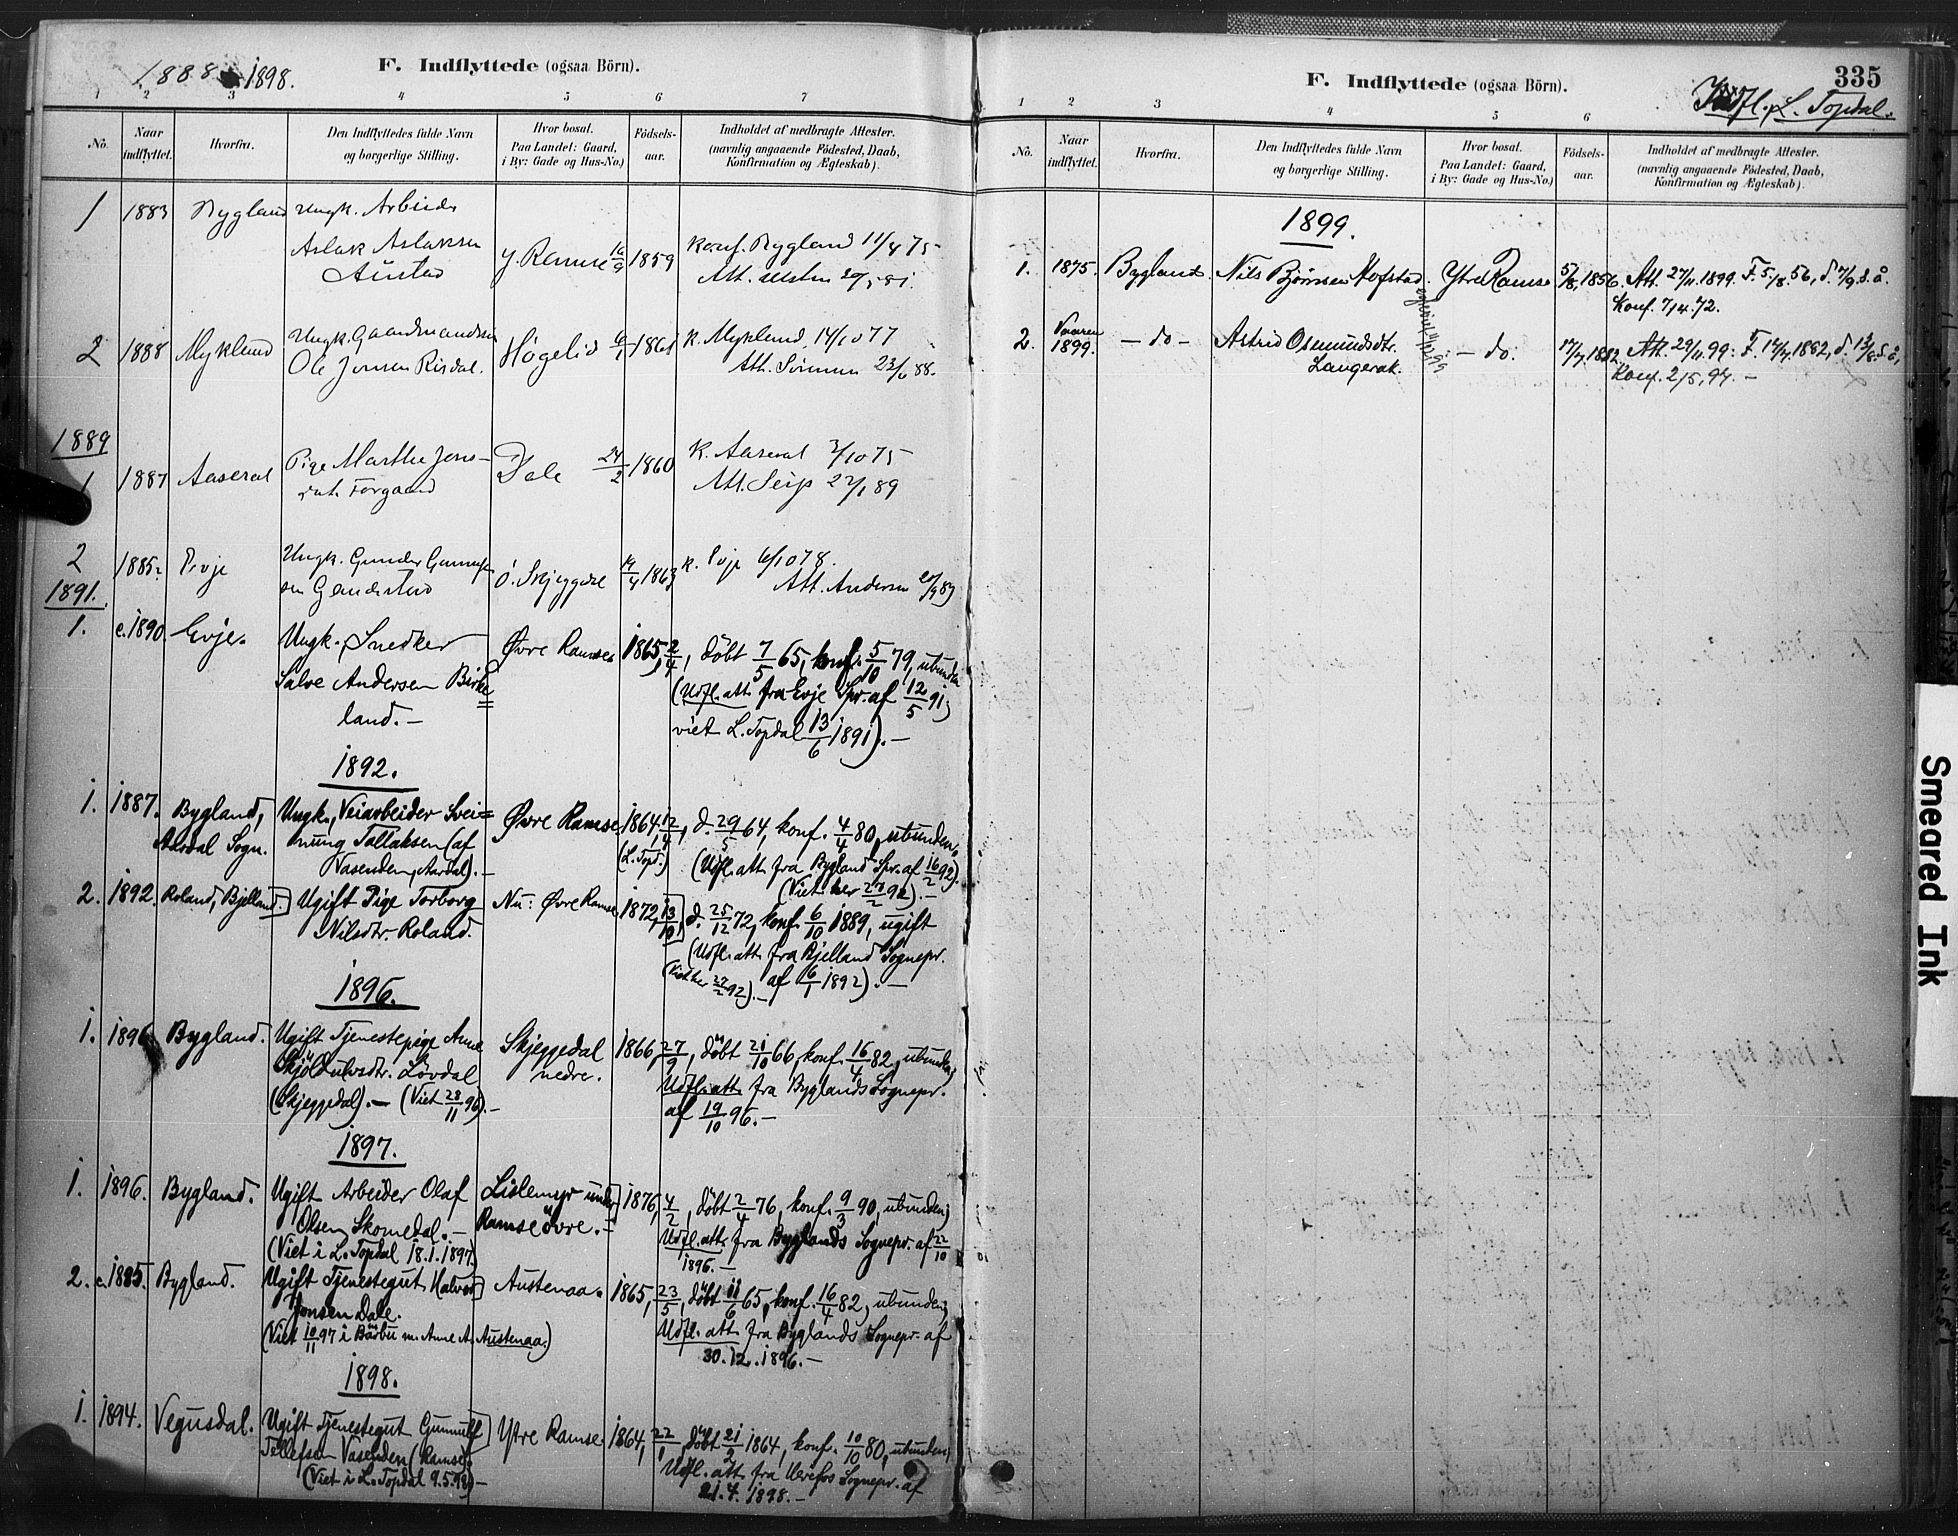 1888-1898.
F. Indflyttede (ogsaa Börn).
1 2 3 4 5 6 7
No.
Naar indflyttet.
Hvorfra.
Den Indflyttedes fulde Navn og borgerlige Stilling.
Hvor bosat. Paa Landet: Gaard, i By: Gade og Hus-No.)
Födsels-aar.
Indholdet af medbragte Attester. (navnlig angaaende Födested, Daab, Konfirmation og Ægteskab).
1 1883 Bygland Ungk. Arbeider
Aslak Aslaksen y. Ramse 1859 Konf. Bygland 11/4 75
Austad Att.
2 1888 Mykland Ungk. Gaardmandssøn Høgelid 1861 k. Mykland 14/10 77
Ole Jensen Risdal. Att. 23/6 88.
1889
1 1887 Aaseral Pige Marthe Jens- Dale 24/2 1860 k. Aaseral 3/10 75
dat. Att. Seip 89
2 1885 Evje Ungk. Gunder Gunnuf- Ö. Skjeggedal 1863 k. Evje 6/10 78.
sen Att. Andersen 89
1891.
1. c. 1890. Evje. Ungk., Snedker Øvre Ramse. 1865, 2/4, döbt 7/5 65, konf. 5/10 79, ubunden
Salve Andersen Birke- (Udfl. att. fra Evje Spr. af 12/5 91;
land. – viet L. Topdal 13/6 1891). –
1892.
1. 1887. Bygland, Ungk., Veiarbeider Svei- Øvre Ramse. 1864, 12/4, d. 29/5 64, konf. 4/4 80, ubunden.
Aardal Sogn. nung Tallaksen (af (L. Topd.) (Udfl. att. fra Bygland Spr. af 16/2 92).
Vasenden, Aardal). – (Viet her 27/2 92). –
2. 1892. Roland, Bjelland. Ugift Pige Torborg Nu: Øvre Ramse. 1872, 13/10, d. 25/12 72, konf. 6/10 1889, ugift
Nilsdtr. Roland. (Udfl. att. fra Bjelland Sognepr.
(Viet her 27/2 92). – af 6/1 1892). –
1896.
1. 1896 Bygland. Ugift Tjenestepige Anne Skjeggedal 1866, 27/9, döbt 21/10 66, konf. 16/4 82, ubunden;
Skjöldulvsdtr. Lövdal nedre. Udfl. att. fra Byglands Sognepr.
(Skjeggedal). – (Viet 28/11 96). – af 19/10 96. –
1897.
1. 1896. Bygland. Ugift Arbeider Olaf Lislemyr under 1876, 4/2, döbt 2/4 76, konf. 9/3 90, ubunden;
Olsen Skomedal. – Ramse övre. – Udfl. att. fra Byglands Sognepr. af 22/10
(Viet i L. Topdal 18.1.1897) 1896. –
2. c. 1885. Bygland. Ugift Tjenestegut Halvor Austenaa. 1865, 23/5, döbt 11/6 65, konf. 16/4 82, ubunden;
Jensen Dale. Udfl. att. fra Byglands Sognepr. af
(Viet 10/11 97 i Barbu m. Anne A. Austenaa.) 30.12.1896. –
1898.
1. 1894. Vegusdal. Ugift Tjenestegut Gunnulf Ytre Ramse. 1864, 22/1, döbt 21/2 1864, konf. 10/10 80, ubunden;
Tellefsen Vasenden (Ramse). Udfl. att. fra Herefos Sognepr. af
(Viet i L. Topdal 9.5.98) – 21.4.1898. –
F. Indflyttede (ogsaa Börn).
335
Indfl. L. Topdal.
1 2 3 4 5 6
No.
Naar indflyttet.
Hvorfra.
Den Indflyttedes fulde Navn og borgerlige Stilling.
Hvor bosat. Paa Landet: Gaard, i By: Gade og Hus-No.)
Födsels-aar.
Indholdet af medbragte Attester. (navnlig angaaende Födested, Daab, Konfirmation og Ægteskab).
1899.
1. 1875. Bygland. Nils Björnsen Hofstad. Ytre Ramse 5/8, 1856. Att. 27/11 1899. F. 5/8. 56, d. 7/9 s. å.
Konf. 7/4. 72.
2. Vaaren 1899. – do – Astrid Osmundsdt. – do. 17/7 1882. Att. 29/11. 99. F. 17/7. 1882, d. 13/8 s. å.,
Langerak. Konf. 2/5, 97. –
Smeared Ink